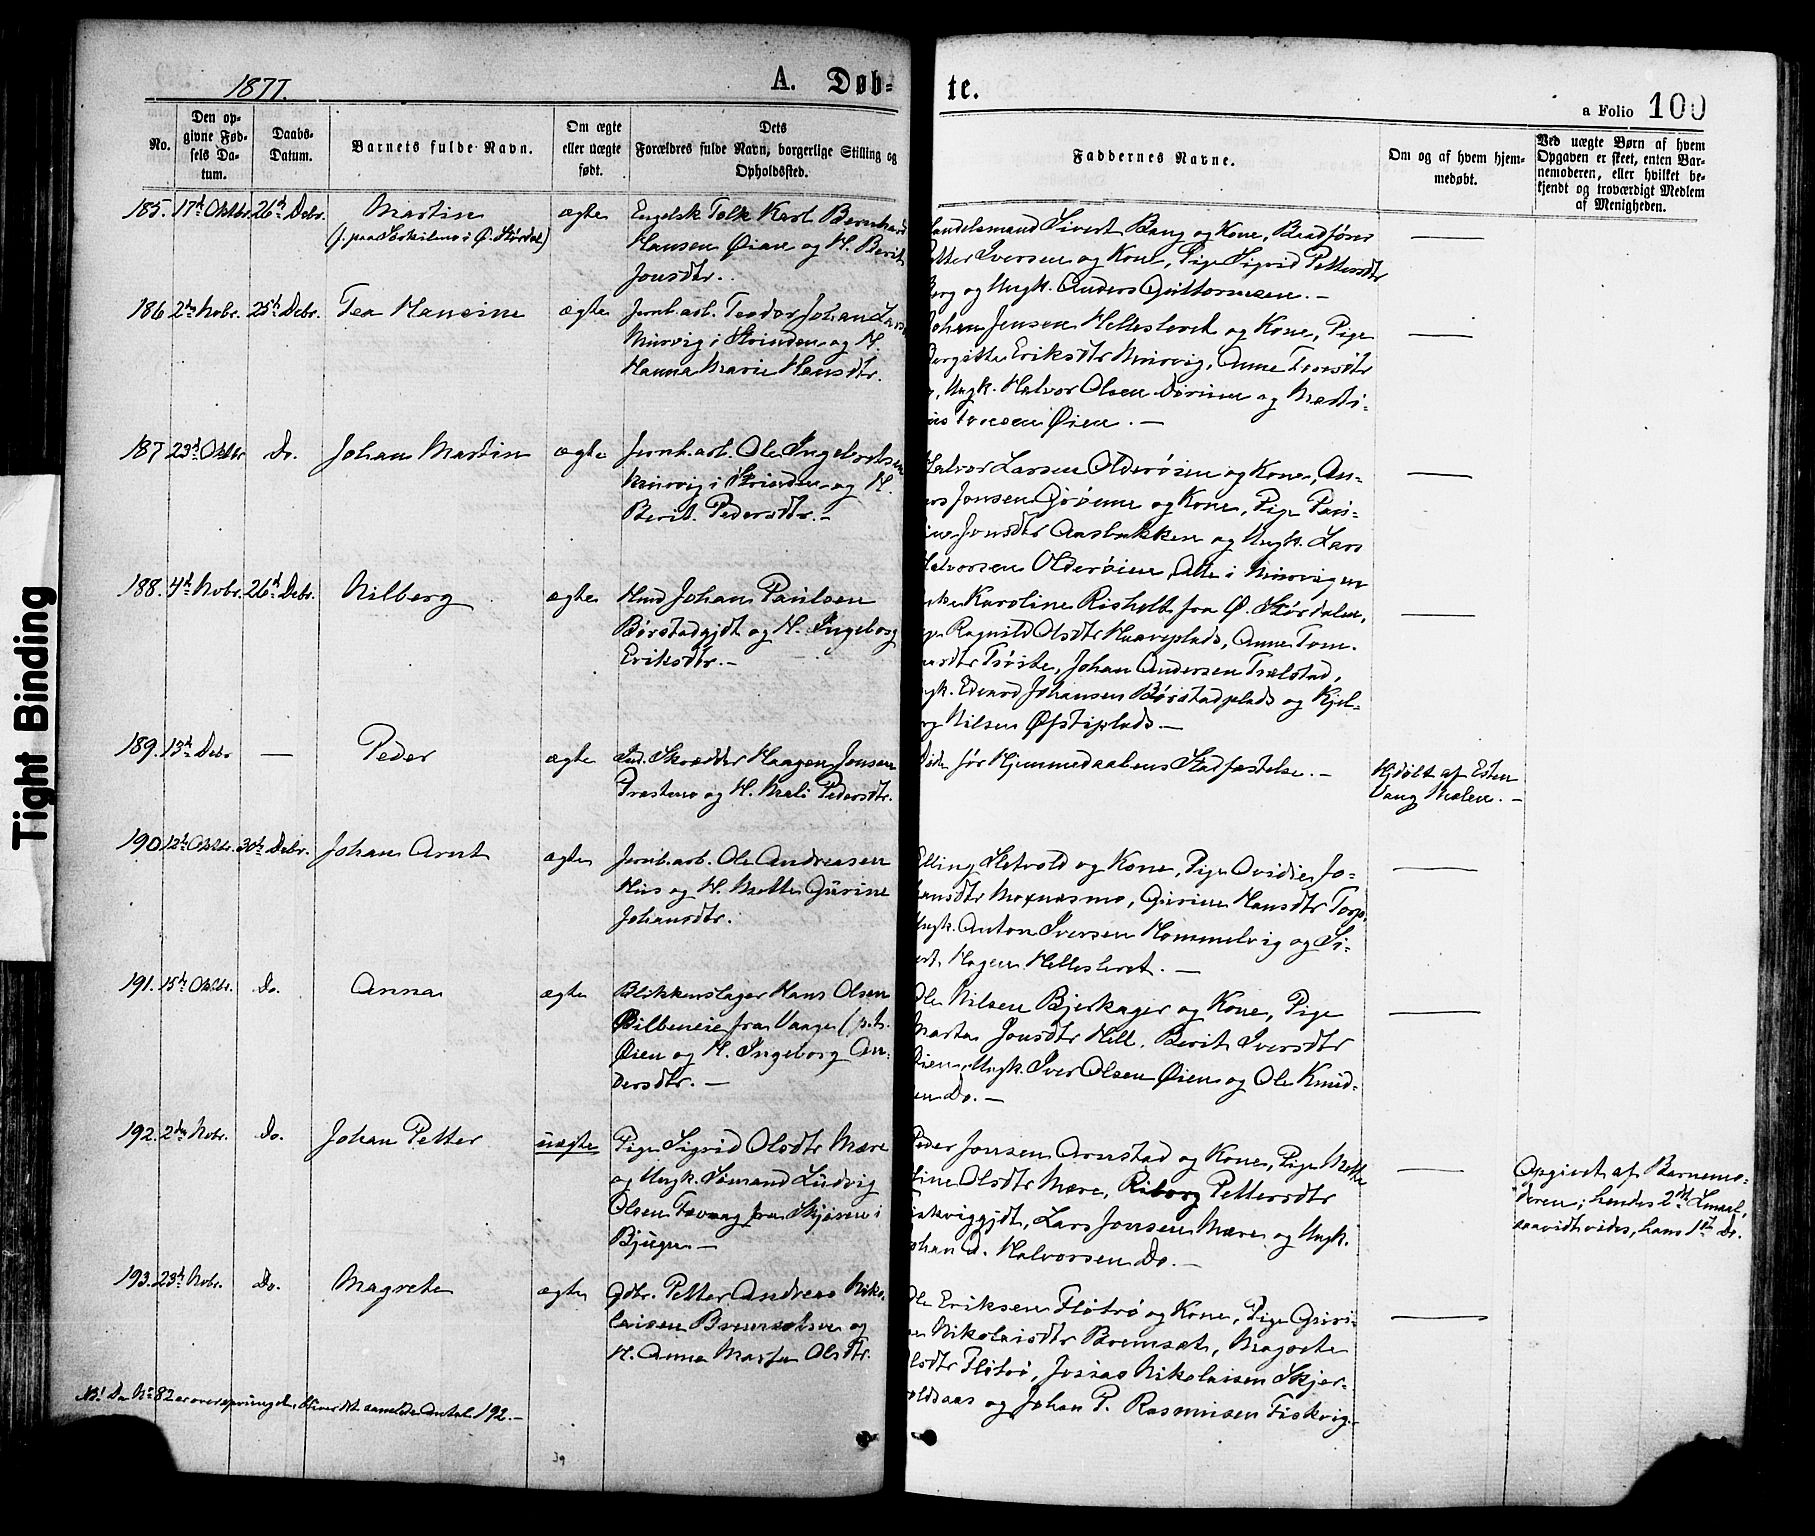 1877.
A. Døb-
te.
a Folio 100
No.
Den op-
givne Fød-
sels Da-
tum.
Daabs-
Datum.
Barnets fulde Navn.
Om ægte
eller uægte
født.
Dets
Forældres fulde Navn, borgerlige Stilling og
Opholdssted.
Faddernes Navne.
Om og af hvem hjem-
medøbt.
Ved uægte Børn af hvem
Opgaven er skeet, enten Bar-
nemoderen, eller hvilket be-
kjendt og troværdigt Medlem
af Menigheden.
185. 17d Oktbr. 26d Debr. Martin ægte Engelsk Tolk Karl Bernhard
Hansen Øian og H. Berit
Jonsdtr.
Handelsmand Sivert Bang og Kone,
Petter Iversen og Kone, Pige Sigrid Pettersdtr
Berg og Ungk. Anders Guttormsen. —
186 2den Nobr. 25d Debr. Tea Hansine ægte Jernb.arb. Teodor Johan
i Strinden og H.
Hanna Marie Hansdtr.
Johan Jensen Helleslevet og Kone, Pige
Eriksdtr, Anne
Ungk. Halvor Olsen og
Øien. —
187 23d Oktbr Do. Johan Martin ægte Jernb.arb. Ole Ingebrigtsen
i Strinden og H.
Berit Pedersdtr. —
Halvor Larsen Olderøien og Kone, An-
Jonsen og Kone, Pige
Jonsdtr Aasbakken og Ungk. Lars
Halvorsen Olderøien, Alle i
188. 4d Nobr. 26d Debr. Nilberg ægte Hmd Johan Paulsen
Børstadgjdt og H. Ingeborg
Eriksdtr. —
Karoline Risholt fra Ø. Størdalen,
Ragnild Olsdtr Haaveplads, Anne Tom-
Johan Andersen Trælstad,
Ungk. Edvard Johansen Børstadplads og Kjel-
Nilsen Øfstiplads. —
189. 13d Debr — Peder ægte Ind. Skrædder Haagen Jonsen
Prestmo og H. Mali Pedersdtr.
Døde før Hjemmedaabens Stadfæstelse. —
Hjdøbt af Esten
Vang Mælen. —
190. 12te Oktbr. 30te Debr. Johan Arnt ægte Jernb.arb. Ole Andreasen
Hus og H. Mette Gurine
Johansdtr.
Elling Sletvold og Kone, Pige Ovidie Jo-
hansdtr Moxnæsmo, Gurine Hansdtr Torp,
Ungk. Anton Iversen Hommelvig og Si-
vert Hagen Helleslevet. —
191. 15de Oktbr. Do. Anna ægte Blikkenslager Hans Olsen
fra Vaage (p.t.
Øien og H. Ingeborg An-
dersdtr. —
Ole Nilsen Bjerkager og Kone, Pige
Marta Jonsdtr Hell, Berit Iversdtr
Øien, Ungk. Iver Olsen Øien og Ole Knud-
sen Do. —
192. 2den Nobr. Do. Johan Petter uægte Pige Sigrid Olsdtr Mære
og Ungk. Sømand Ludvig
Olsen fra i
Bjugn —
Peder Jonsen Arnstad og Kone, Pige Mette
Olsdtr Mære, Riborg Pettersdtr
Fiskviggjdt, Lars Jonsen Mære og Ungk.
Johan D. Halvorsen Do. —
Opgivet af Barnemo-
deren; hendes 2det Lejrmaal,
saavidt vides, hans 1ste Do.
193. 23d Nobr. Do. Magrete ægte Gdbr. Petter Andreas Niko-
laisen og
H. Anna Marta Olsdtr.
Ole Eriksen Fløtrø og Kone, Pige Guri-
ne Nikolaisdtr Bremset, Magrete
Olsdtr Fløtrø, Josias Nikolaisen Skjer-
voldsaas og Johan P. Rasmusen Fiskvig. —
NB! Da No 82 er oversprunget, bliver det samlede Antal 192. —
39
Tight Binding